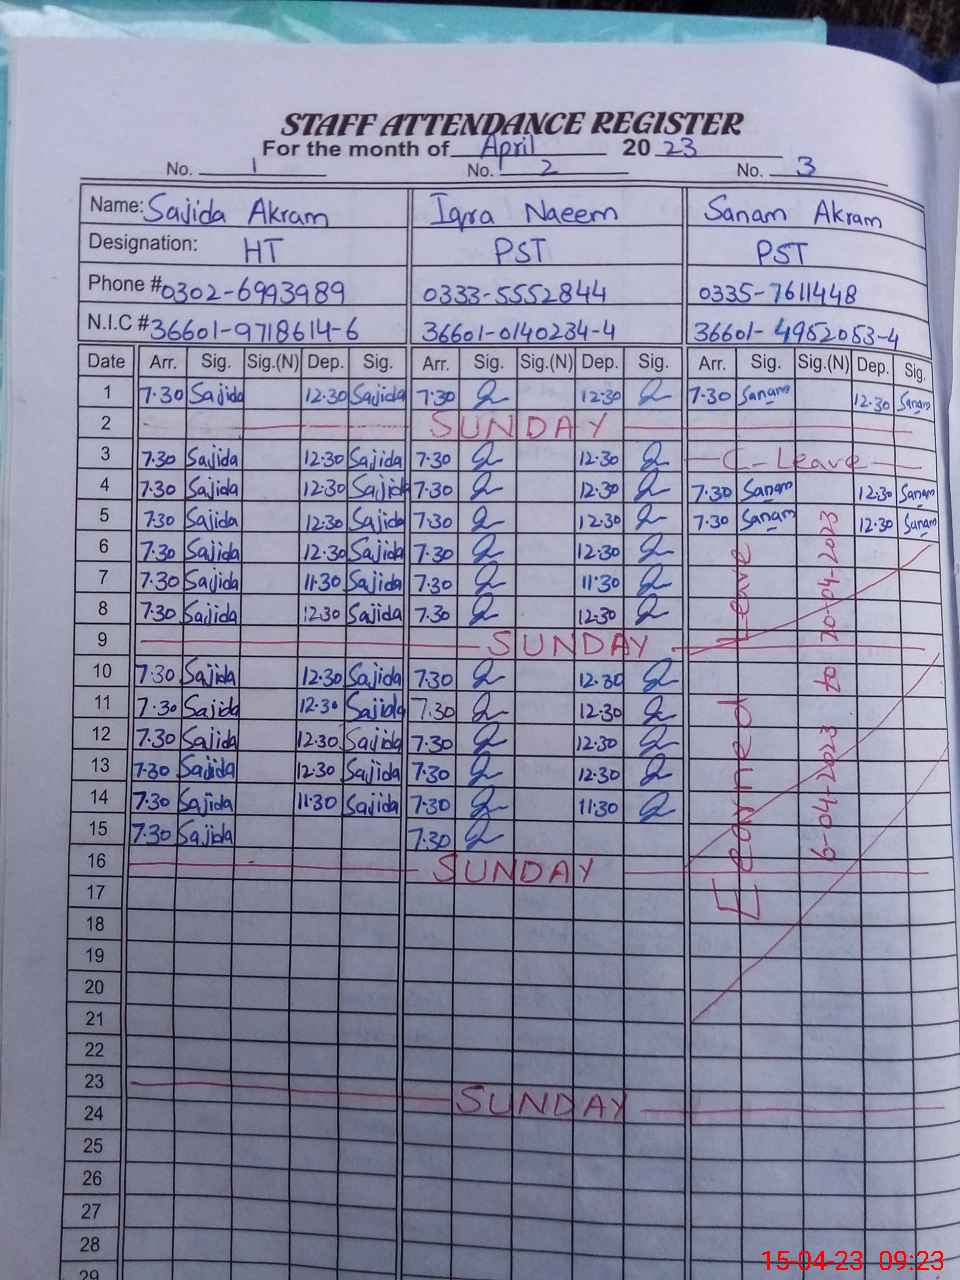 STAFF ATTENDANCE REGISTER
For the month of April 2023
No. 1 No. 2 No. 3
Name: Sajida Akram Iqra Naeem Sanam Akram
Designation: HT PST PST
Phone # 0302-6993989 0333-5552844 0335-7611448
N.I.C # 36601-9718614-6 36601-0140234-4 36601-4952053-4
Date Arr. Sig. Sig.(N) Dep. Sig. Arr. Sig. Sig.(N) Dep. Sig. Arr. Sig. Sig.(N) Dep. Sig.
1 7.30 Sajida 12.30 Sajida 7.30 12.30 7.30 Sanam 12.30 Sanam
2 SUNDAY
3 7.30 Sajida 12.30 Sajida 7.30 12.30 C-Leave
4 7.30 Sajida 12.30 Sajida 7.30 12.30 7.30 Sanam 12.30 Sanam
5 7.30 Sajida 12.30 Sajida 7.30 12.30 7.30 Sanam 12.30 Sanam
6 7.30 Sajida 12.30 Sajida 7.30 12.30
7 7.30 Sajida 11.30 Sajida 7.30 11.30
8 7.30 Sajida 12.30 Sajida 7.30 12.30
9 SUNDAY
10 7.30 Sajida 12.30 Sajida 7.30 12.30
11 7.30 Sajida 12.30 Sajida 7.30 12.30
12 7.30 Sajida 12.30 Sajida 7.30 12.30
13 7.30 Sajida 12.30 Sajida 7.30 12.30
14 7.30 Sajida 11.30 Sajida 7.30 11.30
15 7.30 Sajida 7.30
Leave
6-04-2023 to 20-04-2023
16 SUNDAY
17
18
19
20
21
22
23 SUNDAY
24
25
26
27
28
29
15-04-23 09:23